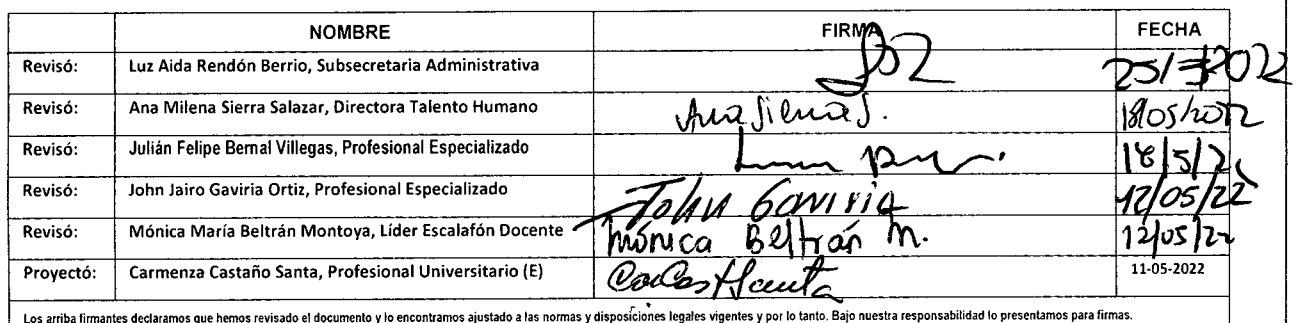 NOMBRE FIRMA FECHA
Revisó: Luz Aida Rendón Berrio, Subsecretaria Administrativa
Revisó: Ana Milena Sierra Salazar, Directora Talento Humano Ana Sierra S. 18/05/2022
Revisó: Julián Felipe Bernal Villegas, Profesional Especializado 18/5/22
Revisó: John Jairo Gaviria Ortiz, Profesional Especializado John Gaviria 12/05/22
Revisó: Mónica María Beltrán Montoya, Líder Escalafón Docente Mónica Beltrán M. 12/05/22
Proyectó: Carmenza Castaño Santa, Profesional Universitario (E) 11-05-2022
Los arriba firmantes declaramos que hemos revisado el documento y lo encontramos ajustado a las normas y disposiciones legales vigentes y por lo tanto. Bajo nuestra responsabilidad lo presentamos para firmas.